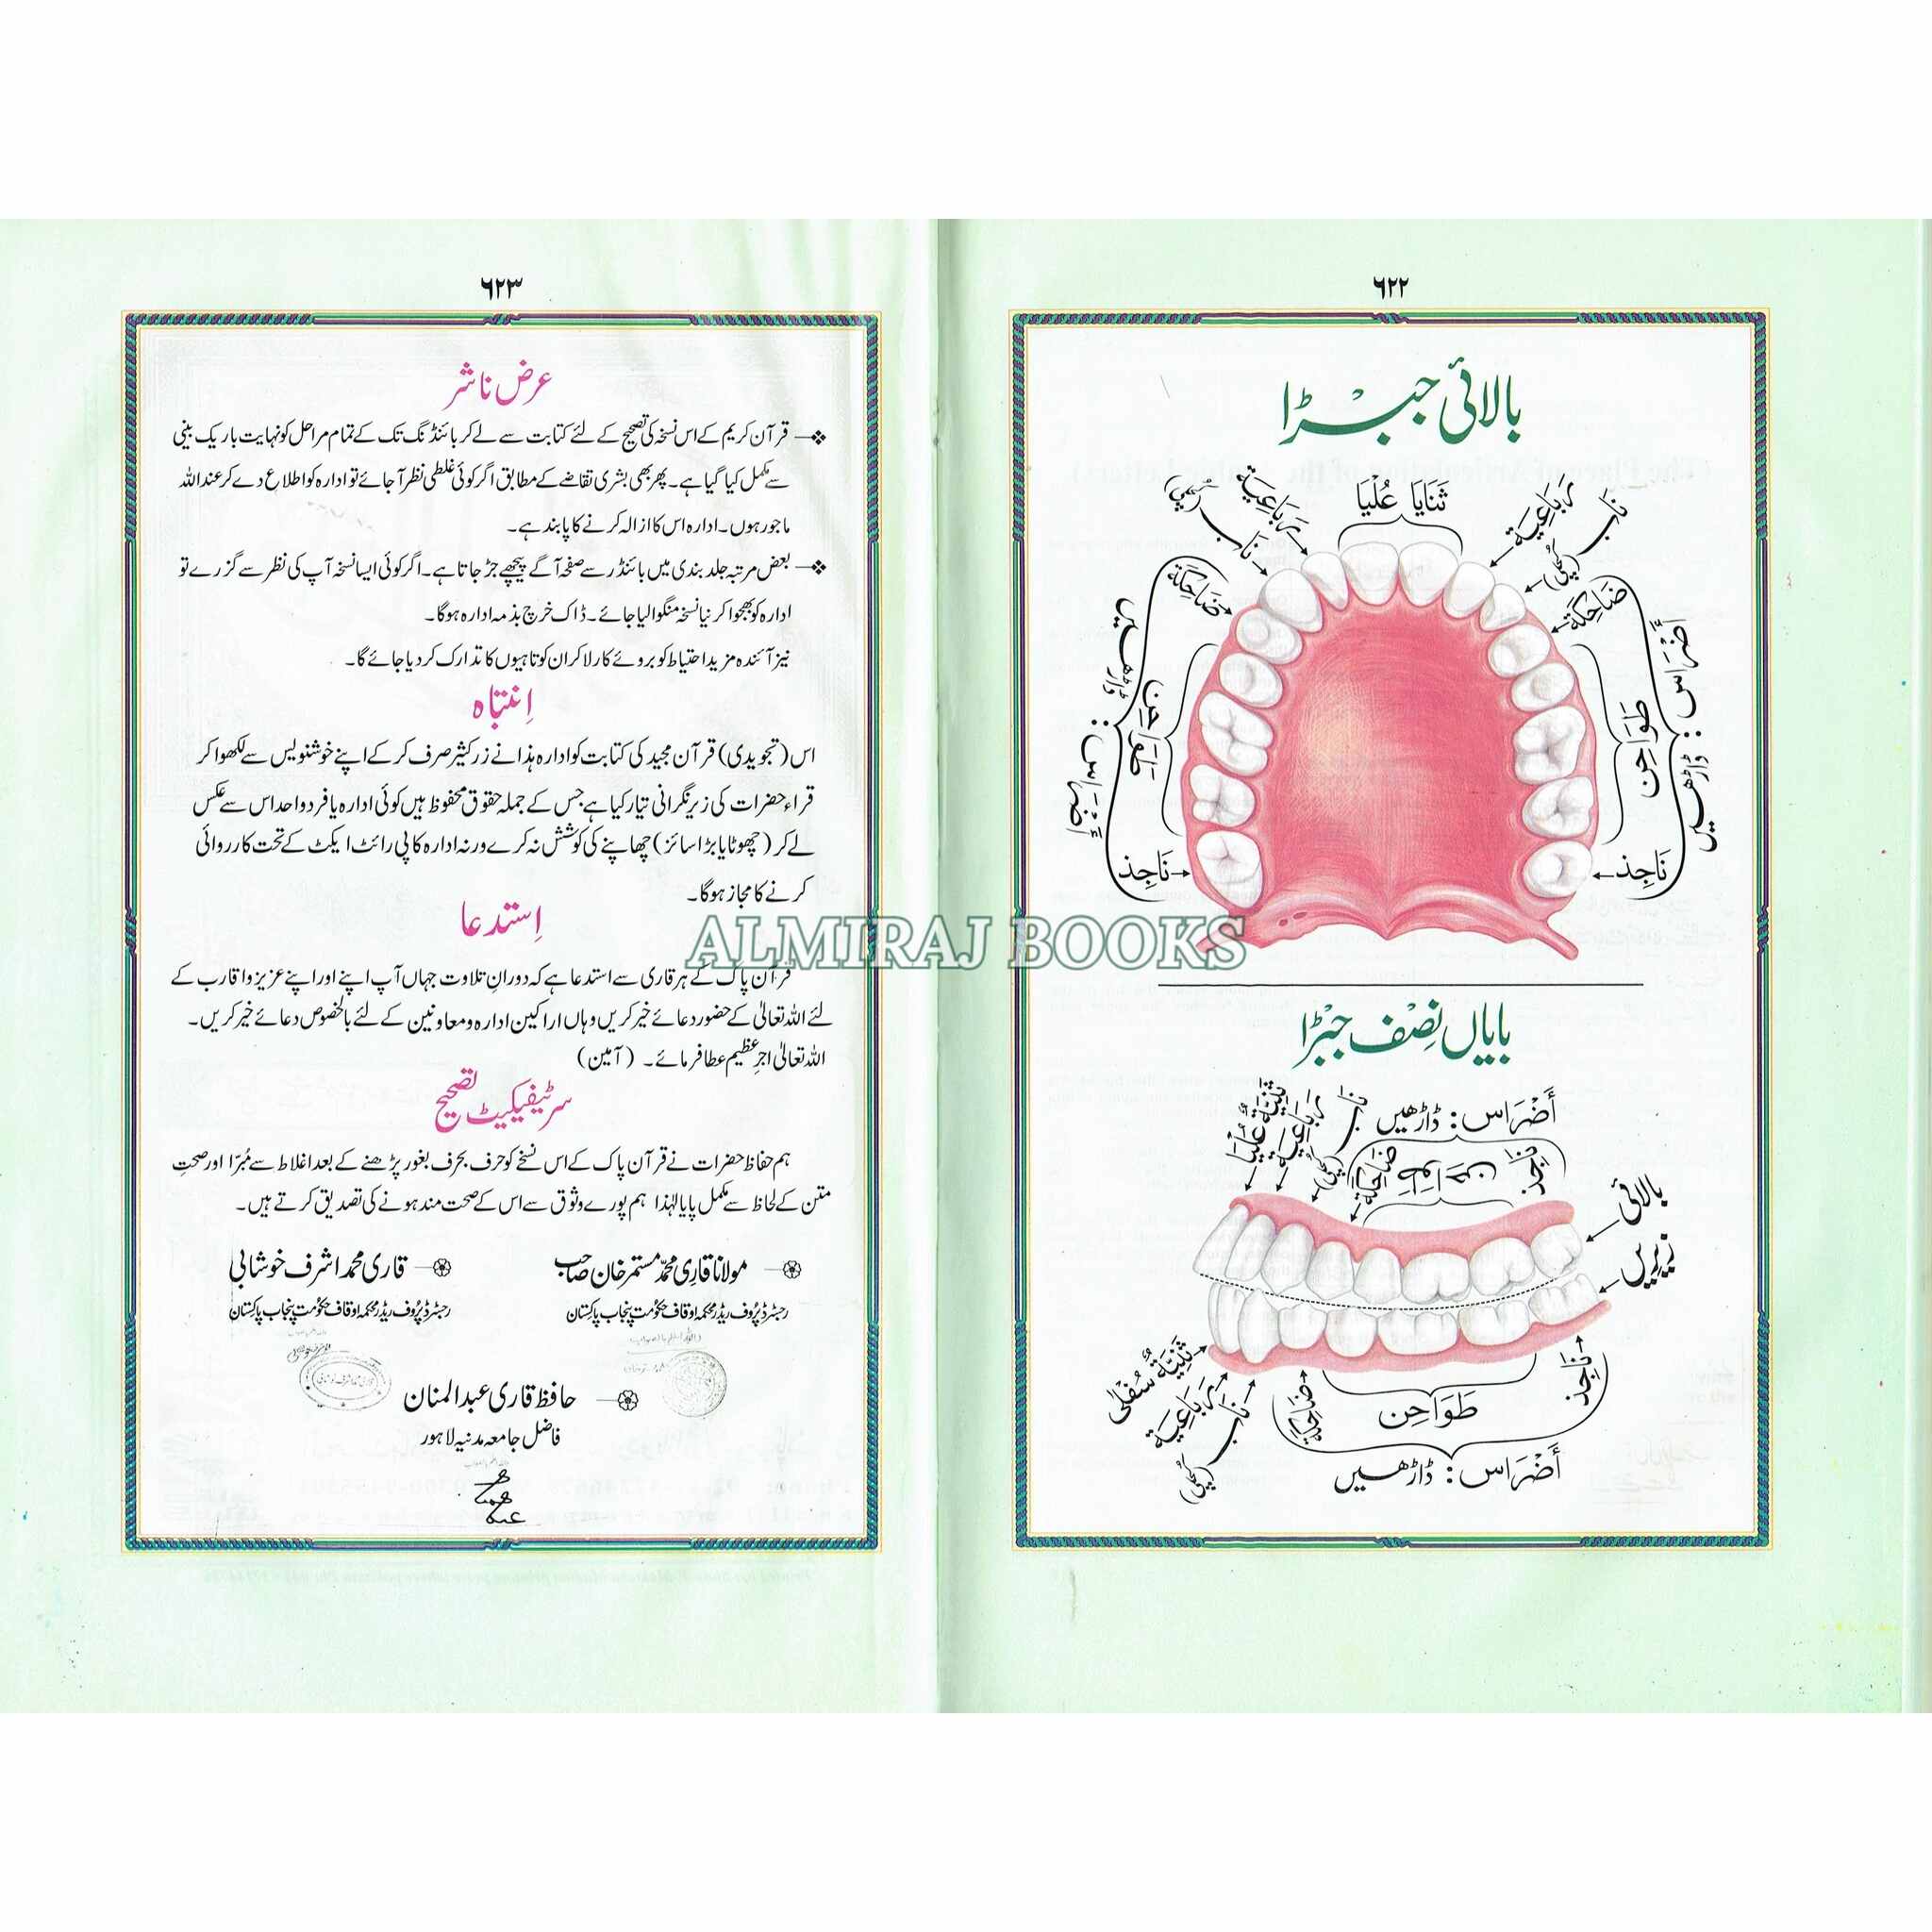 ٦٢٢
بالائی جبڑا
ثَنَايَا عُلْيَا
رَبَاعِيَة
رَبَاعِيَة
نَاب (کچلی)
نَاب (کچلی)
ضَاحِكَة
ضَاحِكَة
طَوَاحِن
طَوَاحِن
أَضْرَاس: ڈاڑھیں
أَضْرَاس: ڈاڑھیں
نَاجِذ
نَاجِذ
بایاں نِصْف جبْڑا
أَضْرَاس: ڈاڑھیں
ثَنِيَّة عُلْيَا
رَبَاعِيَة
نَاب (کچلی)
ضَاحِكَة
طَوَاحِن
نَاجِذ
بالائی
زیریں
ثَنِيَّة سُفْلٰى
رَبَاعِيَة
نَاب (کچلی)
ضَاحِكَة
طَوَاحِن
نَاجِذ
أَضْرَاس: ڈاڑھیں
٦٢٣
عرض ناشر
قرآن کریم کے اس نسخہ کی تصحیح کے لئے کتابت سے لے کر بائنڈنگ تک کے تمام مراحل کو نہایت باریک بینی
سے مکمل کیا گیا ہے۔ پھر بھی بشری تقاضے کے مطابق اگر کوئی غلطی نظر آجائے تو ادارہ کو اطلاع دے کر عنداللہ
ماجور ہوں۔ ادارہ اس کا ازالہ کرنے کا پابند ہے۔
بعض مرتبہ جلد بندی میں بائنڈر سے صفحہ آگے پیچھے جڑ جاتا ہے۔ اگر کوئی ایسا نسخہ آپ کی نظر سے گزرے تو
ادارہ کو بھجوا کر نیا نسخہ منگوا لیا جائے۔ ڈاک خرچ بذمہ ادارہ ہوگا۔
نیز آئندہ مزید احتیاط کو بروئے کار لا کر ان کوتاہیوں کا تدارک کر دیا جائے گا۔
اِنتباہ
اس (تجویدی) قرآن مجید کی کتابت کو ادارہ ہذا نے زرکثیر صرف کر کے اپنے خوشنویس سے لکھوا کر
قراء حضرات کی زیر نگرانی تیار کیا ہے جس کے جملہ حقوق محفوظ ہیں کوئی ادارہ یا فرد واحد اس سے عکس
لے کر (چھوٹا یا بڑا سائز) چھاپنے کی کوشش نہ کرے ورنہ ادارہ کاپی رائٹ ایکٹ کے تحت کارروائی
کرنے کا مجاز ہوگا۔
اِستدعا
قرآن پاک کے ہر قاری سے استدعا ہے کہ دورانِ تلاوت جہاں آپ اپنے اور اپنے عزیز و اقارب کے
لئے اللہ تعالیٰ کے حضور دعائے خیر کریں وہاں اراکین ادارہ و معاونین کے لئے بالخصوص دعائے خیر کریں۔
اللہ تعالیٰ اجرِ عظیم عطا فرمائے۔ (آمین)
سرٹیفیکیٹ تصحیح
ہم حفاظ حضرات نے قرآن پاک کے اس نسخے کو حرف بحرف بغور پڑھنے کے بعد اغلاط سے مُبرّا اور صحتِ
متن کے لحاظ سے مکمل پایا لہٰذا ہم پورے وثوق سے اس کے صحت مند ہونے کی تصدیق کرتے ہیں۔
مولانا قاری محمد مستمر خان صاحب
رجسٹرڈ پروف ریڈر محکمہ اوقاف حکومت پنجاب پاکستان
قاری محمد اشرف خوشابی
رجسٹرڈ پروف ریڈر محکمہ اوقاف حکومت پنجاب پاکستان
حافظ قاری عبدالمنان
فاضل جامعہ مدنیہ لاہور
ALMIRAJ BOOKS